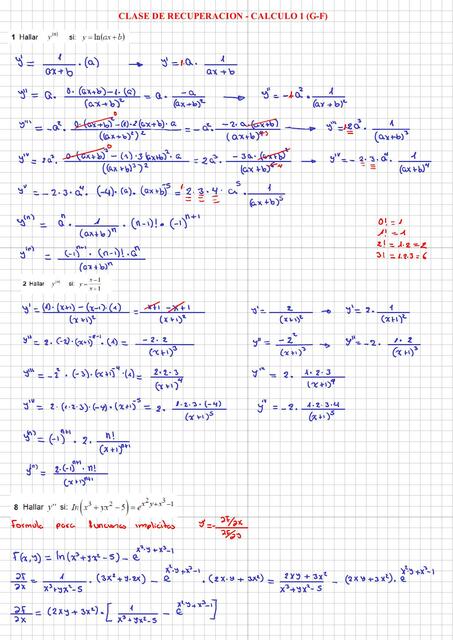 CLASE DE RECUPERACION - CALCULO 1 (G-F)
1 Hallar y⁽ⁿ⁾ si: y = ln(ax+b)
y' = 1/(ax+b) · (a) → y' = 1·a · 1/(ax+b)
y'' = a · (0·(ax+b) - 1·(a))/(ax+b)² = a · (-a)/(ax+b)² → y'' = -1a² · 1/(ax+b)²
y''' = -a² · (0·(ax+b)² - (1)·2(ax+b)·a)/((ax+b)²)² = -a² · (-2·a·(ax+b))/(ax+b)⁴⁻³ → y''' = 1·2a³ · 1/(ax+b)³
y'ᵛ = 2a³ · (0·(ax+b)³ - (1)·3(ax+b)²·a)/((ax+b)³)² = 2a³ · (-3a·(ax+b)²)/(ax+b)⁶⁻⁴ → y'ᵛ = -2·3·a⁴ · 1/(ax+b)⁴
yᵛ = -2·3·a⁴ · (-4)·(a)·(ax+b)⁻⁵ = 1·2·3·4·a⁵ · 1/(ax+b)⁵
y⁽ⁿ⁾ = aⁿ · 1/(ax+b)ⁿ · (n-1)! · (-1)ⁿ⁺¹
0! = 1
1! = 1
y⁽ⁿ⁾ = ((-1)ⁿ⁺¹ · (n-1)! · aⁿ)/(ax+b)ⁿ
2! = 1·2 = 2
3! = 1·2·3 = 6
2 Hallar y⁽ⁿ⁾ si: y = (x-1)/(x+1)
y' = ((1)·(x+1) - (x-1)·(1))/(x+1)² = (x+1 - x+1)/(x+1)² y' = 2/(x+1)² → y' = 2 · 1/(x+1)²
y'' = 2·(-2)·(x+1)⁻²⁻¹·(1) = (-2·2)/(x+1)³ y'' = -2²/(x+1)³ → y'' = -2 · (1·2)/(x+1)³
y''' = -2² · (-3)·(x+1)⁻⁴·(1) = (2·2·3)/(x+1)⁴ y''' = 2 · (1·2·3)/(x+1)⁴
y'ᵛ = 2·(1·2·3)·(-4)·(x+1)⁻⁵ = 2 · (1·2·3·(-4))/(x+1)⁵ y'ᵛ = -2 · (1·2·3·4)/(x+1)⁵
y⁽ⁿ⁾ = (-1)ⁿ⁺¹ · 2 · n!/(x+1)ⁿ⁺¹
y⁽ⁿ⁾ = (2·(-1)ⁿ⁺¹·n!)/(x+1)ⁿ⁺¹
8 Hallar y'' si: ln(x³ + yx² - 5) = e^(x²y+x³-1)
Formula para funciones implicitas y' = -(∂F/∂x)/(∂F/∂y)
F(x,y) = ln(x³+yx²-5) - e^(x²·y+x³-1)
∂F/∂x = 1/(x³+yx²-5) · (3x²+y·2x) - e^(x²·y+x³-1) · (2x·y+3x²) = (2xy+3x²)/(x³+yx²-5) - (2xy+3x²)·e^(x²y+x³-1)
∂F/∂x = (2xy+3x²)·[1/(x³+yx²-5) - e^(x²y+x³-1)]